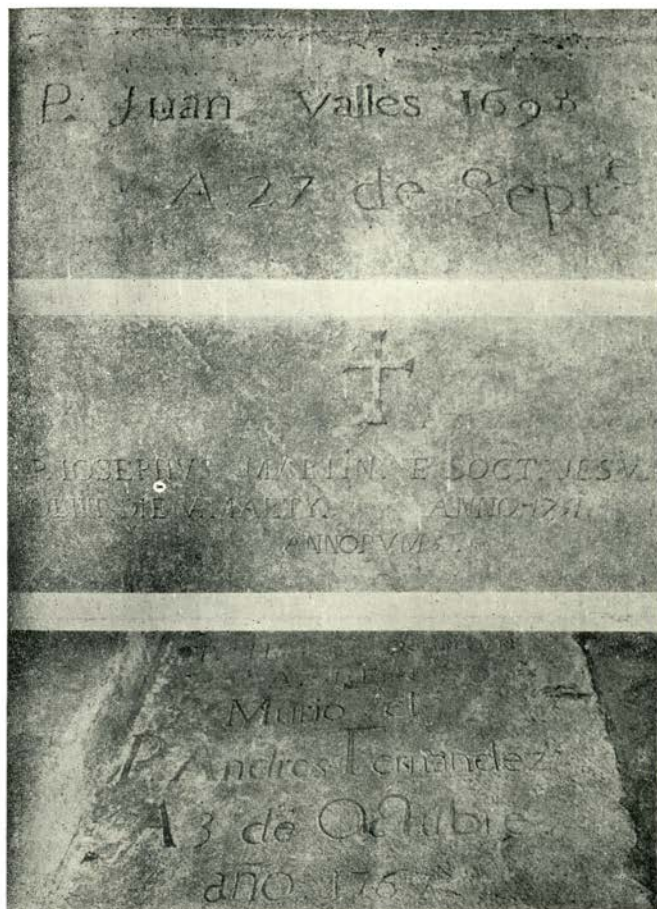 P. Juan Valles 1698
A 27 de Septᵉ
P. IOSEPHVS MARTIN. E SOCT. JESV.
OBIIT DIE V. MARTY. ANNO
ANNORVM
Murio el
P. Andres Fernandez
A 3 de Octubre
año 1767